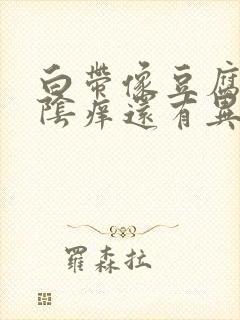 白帶像豆腐
陰痒還有異
羅森拉